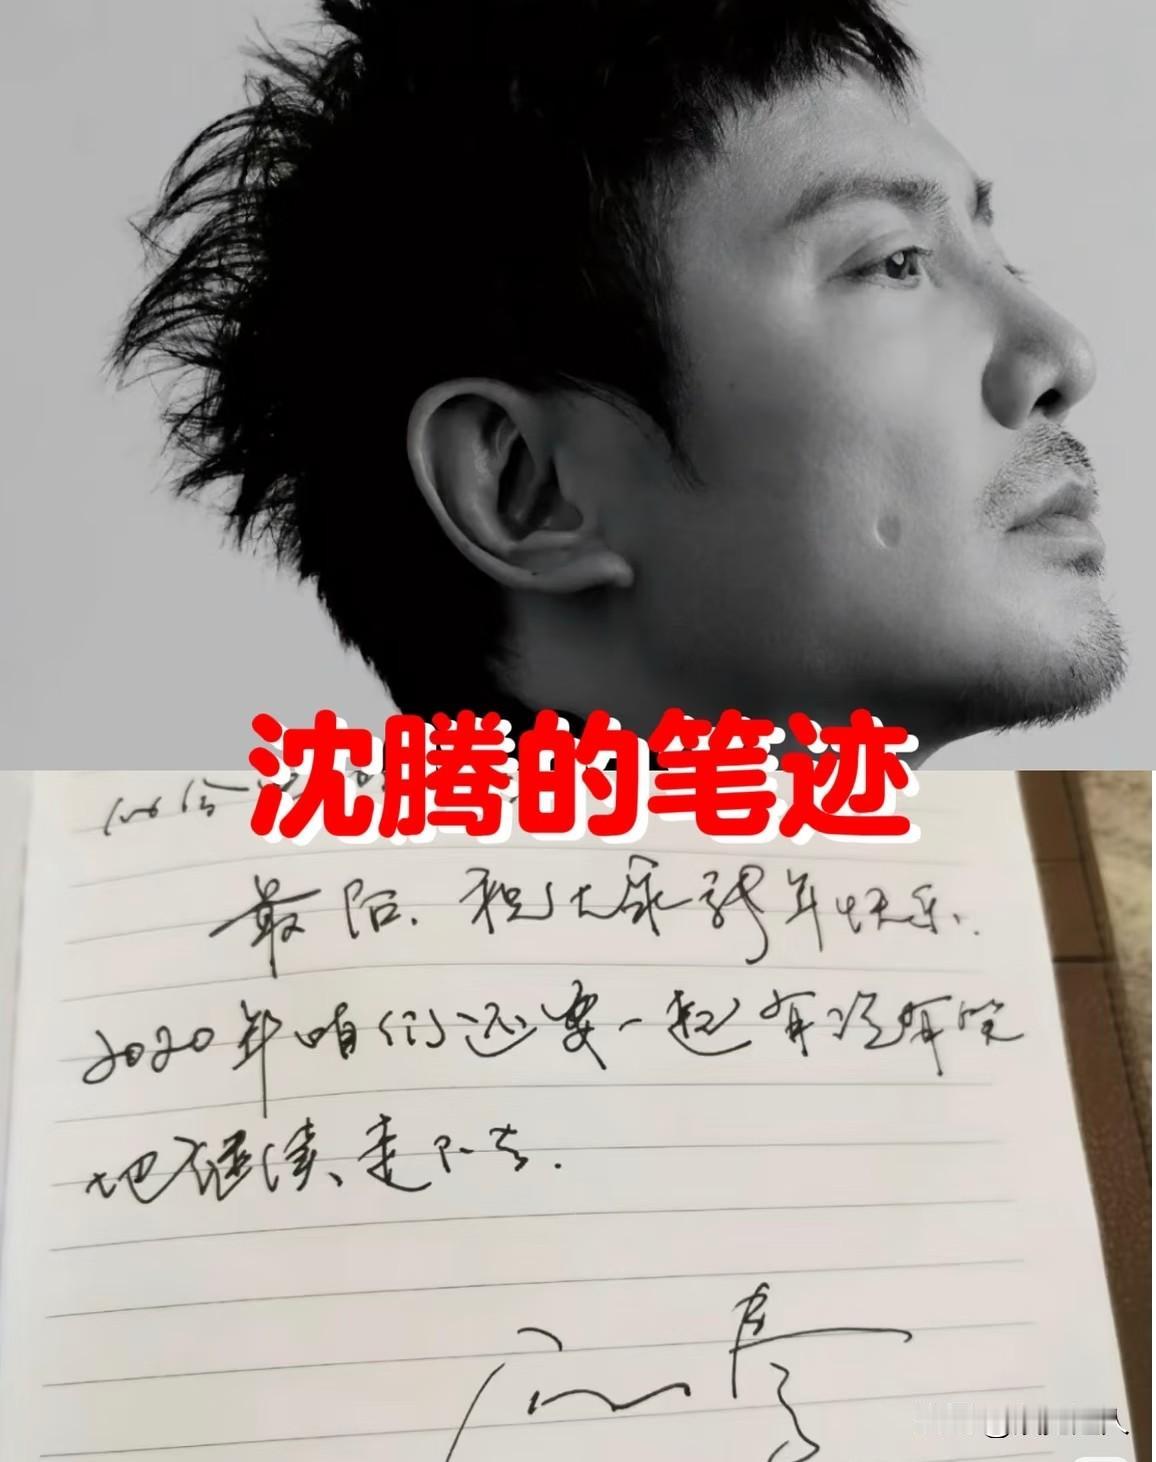 沈腾的笔迹
最后,祝大家新年快乐.
2020年咱们还要一起有说有笑
地继续走下去.